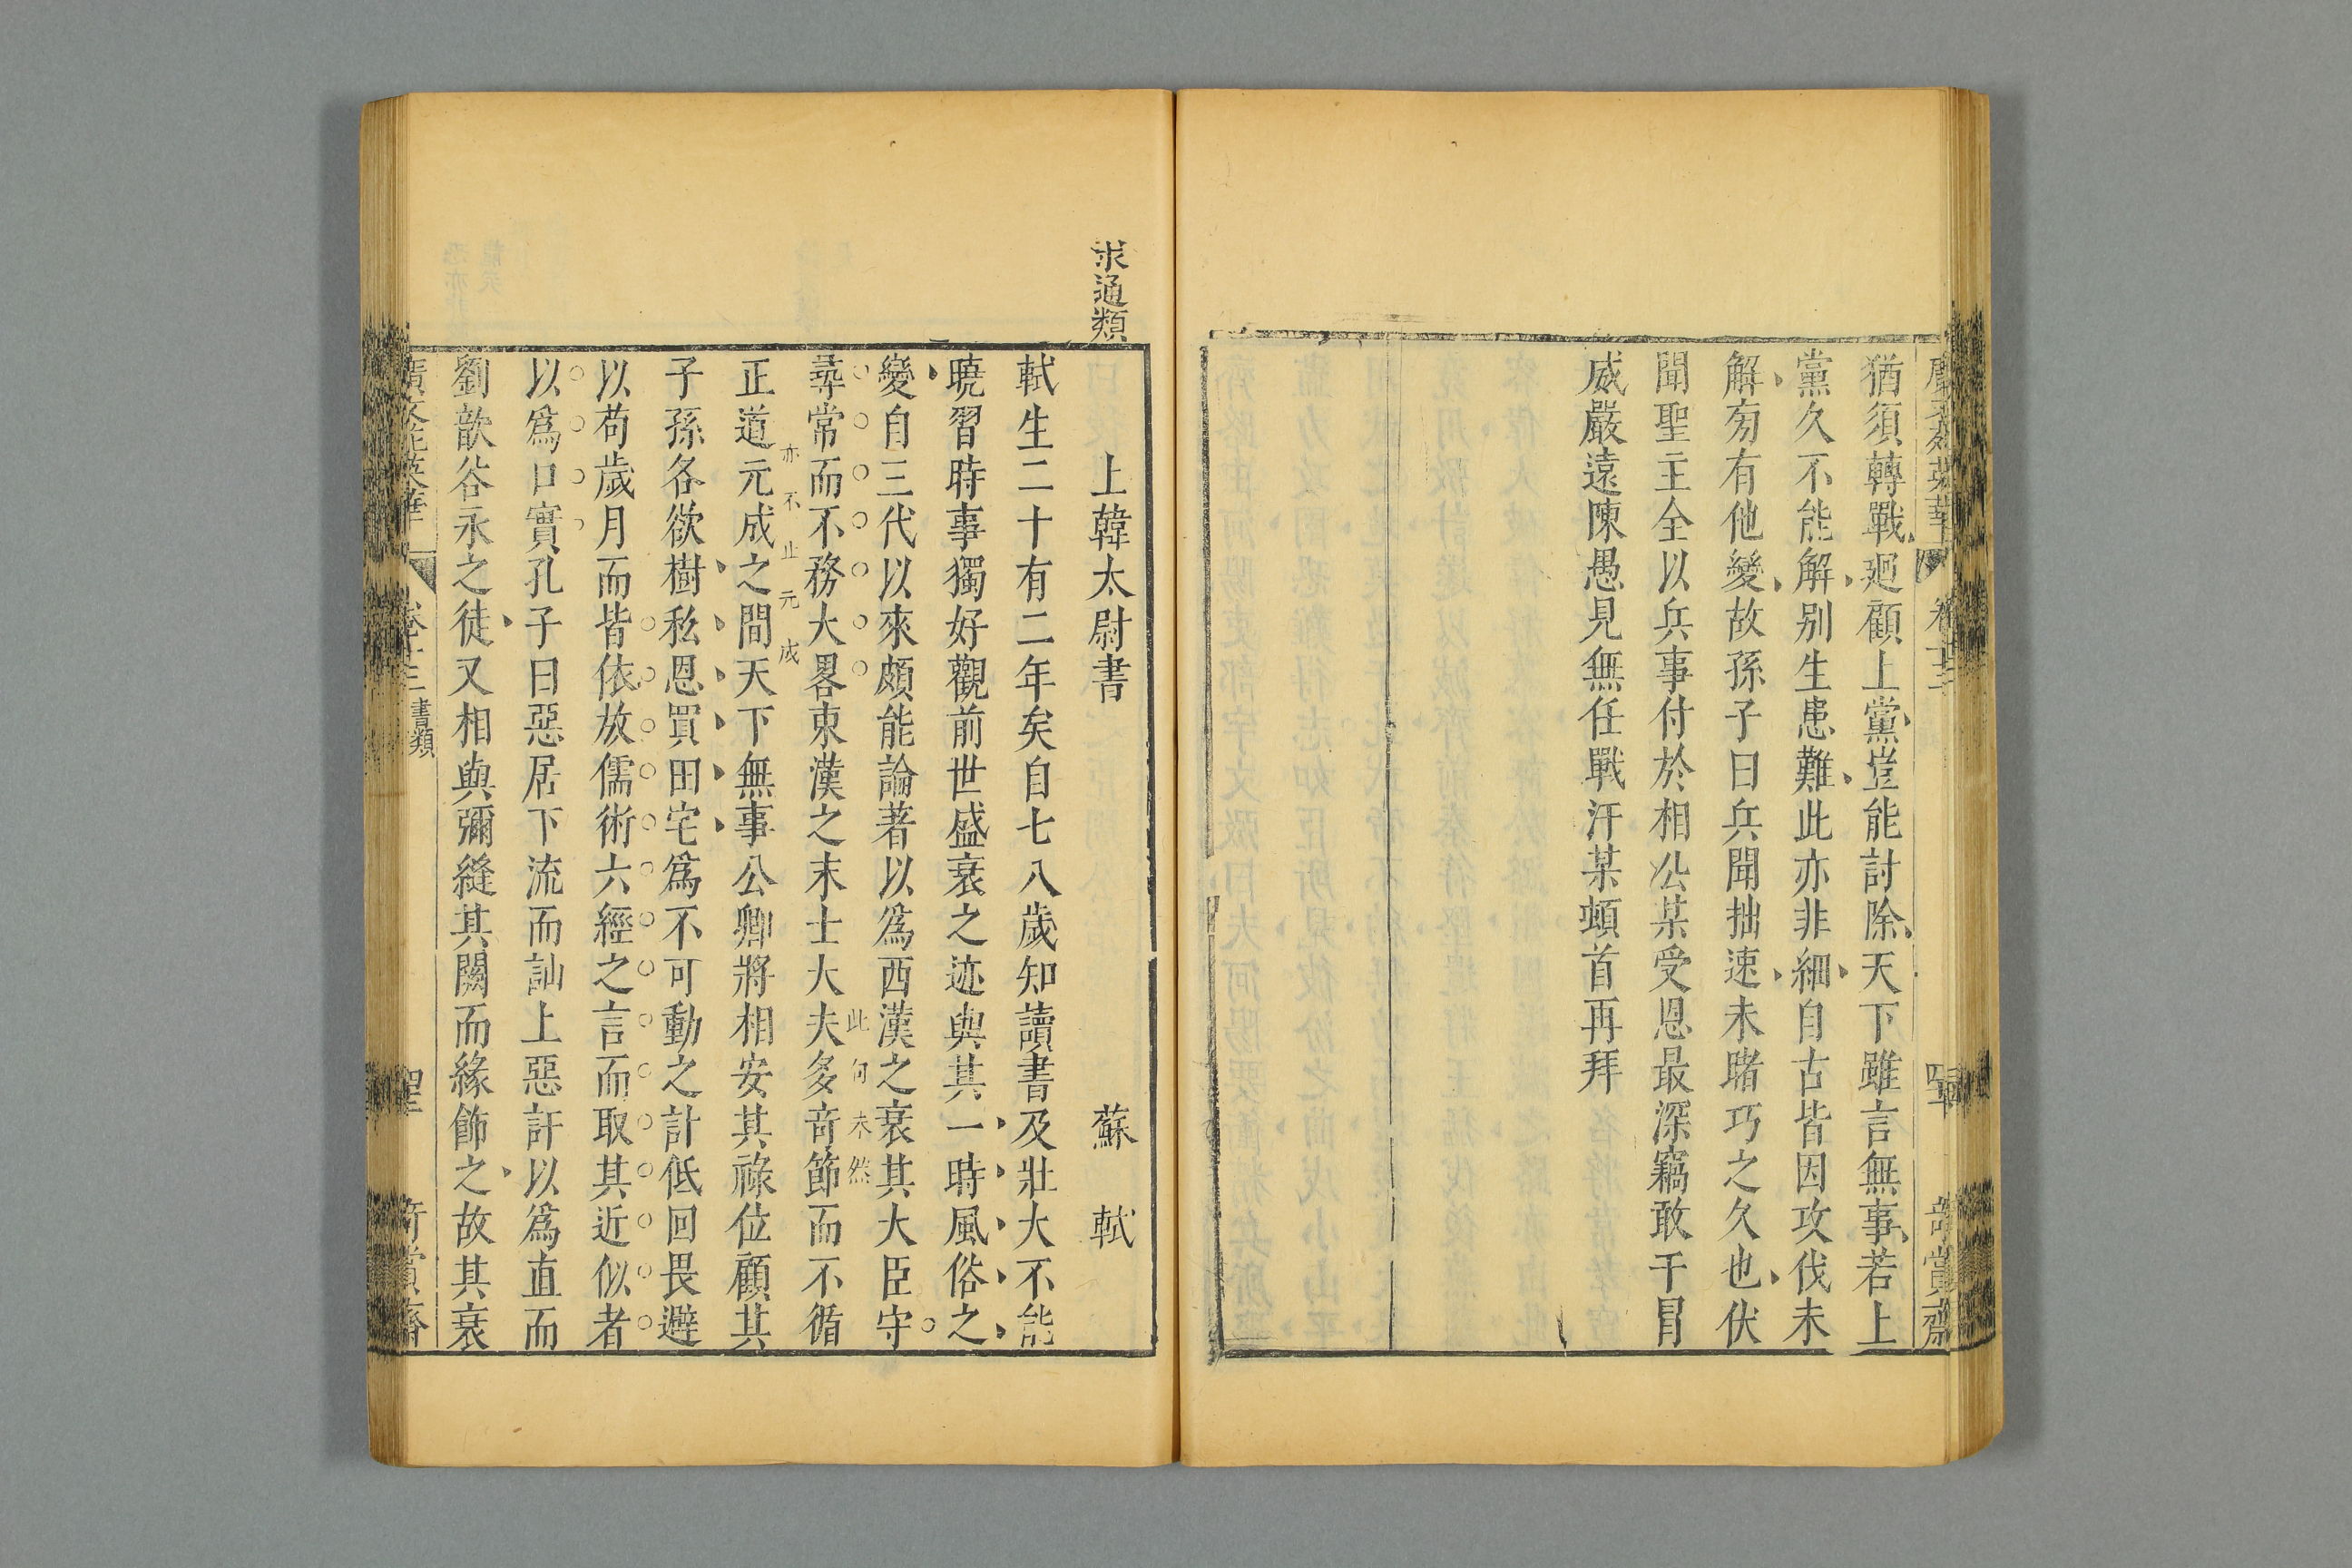 猶須轉戰廻顧上黨豈能討除天下雖言無事若上
黨久不能解别生患難此亦非細自古皆因攻伐未
解旁有他變故孫子曰兵聞拙速未睹巧之久也伏
聞聖主全以兵事付於相公某受恩最深竊敢干冒
威嚴遠陳愚見無任戰汗某頓首再拜
求通類
上韓太尉書 蘇軾
軾生二十有二年矣自七八歲知讀書及壯大不能
曉習時事獨好觀前世盛衰之迹與其一時風俗之
變自三代以來頗能論著以爲西漢之衰其大臣守
此何未然
尋常而不務大畧東漢之末士大夫多竒節而不循
亦不止元成
正道元成之間天下無事公卿將相安其祿位顧其
子孫各欲樹私恩買田宅爲不可動之計低回畏避
以苟歲月而皆依放儒術六經之言而取其近似者
以爲口實孔子曰惡居下流而訕上惡訐以爲直而
劉歆谷永之徒又相與彌縫其闕而緣飾之故其衰
書類